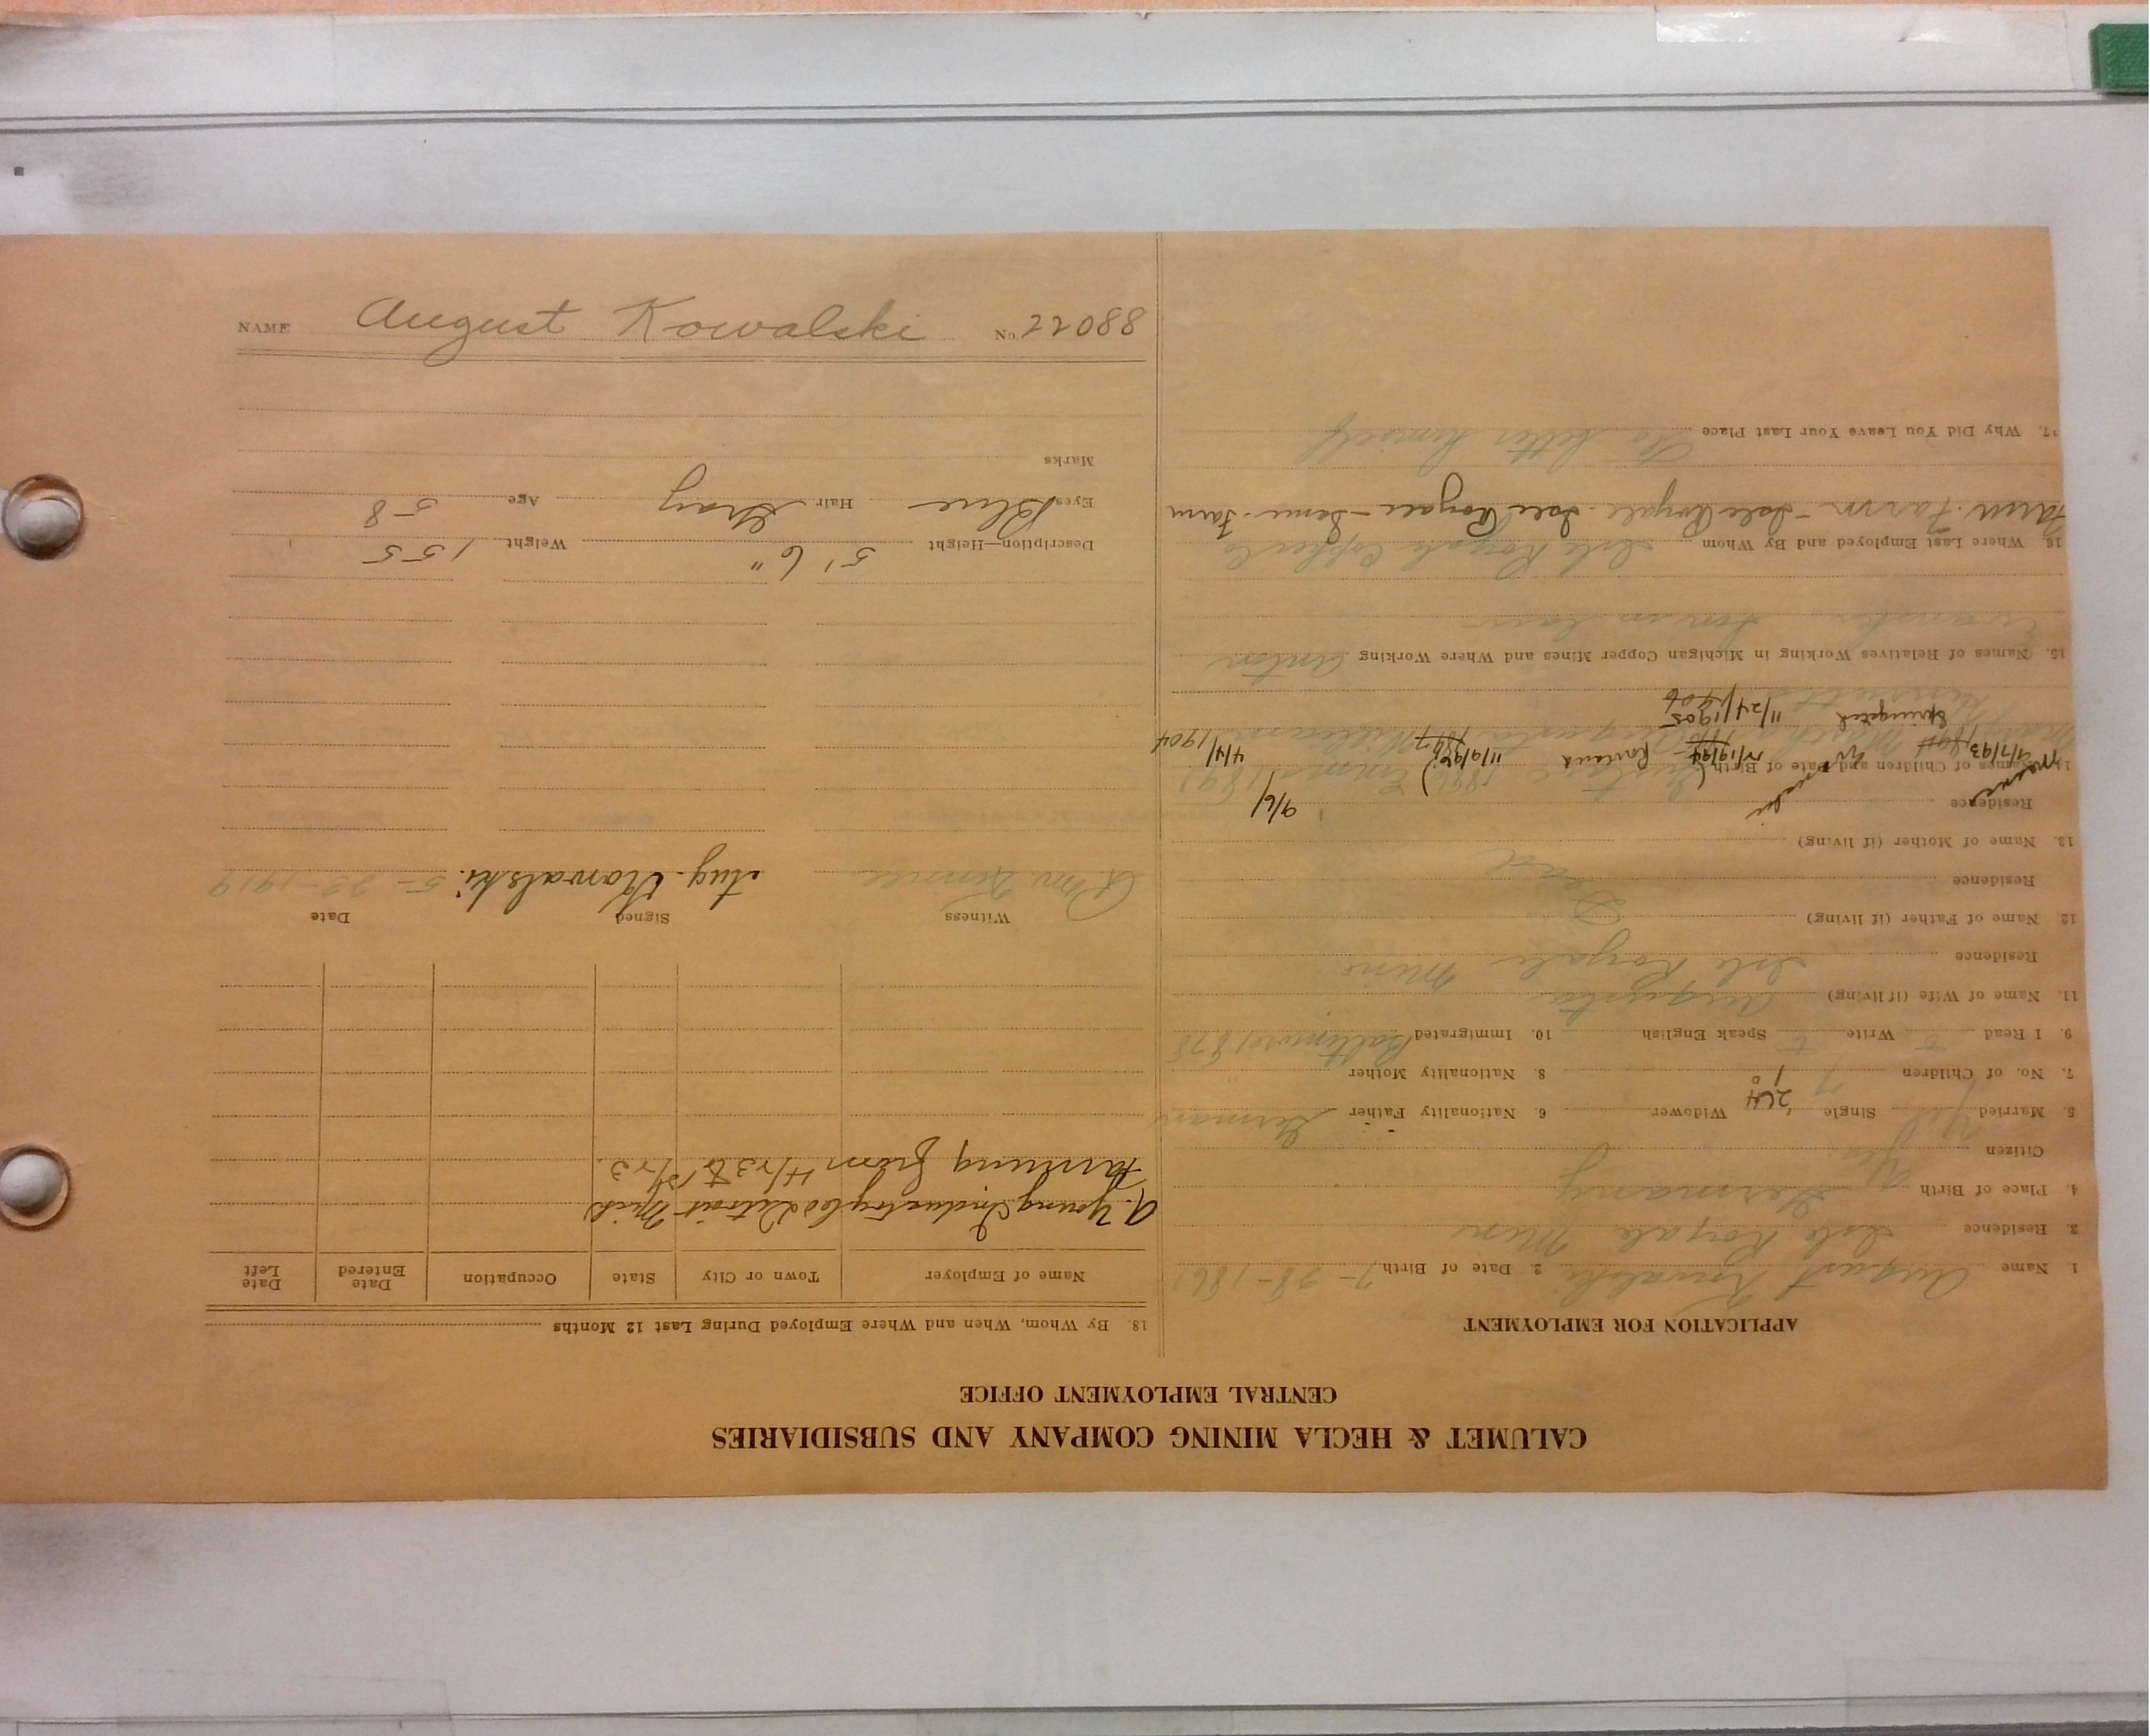 CALUMET & HECLA MINING COMPANY AND SUBSIDIARIES
CENTRAL EMPLOYMENT OFFICE
APPLICATION FOR EMPLOYMENT
1. Name August Kowalski 2. Date of Birth 7-28-1861
3. Residence Isle Royale Mine
4. Place of Birth Germany
Citizen Yes
5. Married Yes Single Widower 6. Nationality Father German
7. No. of Children 7 8. Nationality Mother "
9. I Read Write Speak English 10. Immigrated Baltimore 1878
11. Name of Wife (if living) Augusta
Residence Isle Royale Mine
12. Name of Father (if living) Dead
Residence
13. Name of Mother (if living)
Residence
14. Names of Children and Date of Birth Gustave 1896) Emma 1891
Mary 1894 Augusta 1897 William 1904
15. Names of Relatives Working in Michigan Copper Mines and Where Working Anton
Son in law
16. Where Last Employed and By Whom Isle Royale Copper Co
Farm - Isle Royale - Isle Royale - Same - Farm
17. Why Did You Leave Your Last Place To better himself
18. By Whom, When and Where Employed During Last 12 Months
Name of Employer Town or City State Occupation Date Entered Date Left
A. Young Industry Co Detroit Mich
Farming from 4/23 to 12/23.
Witness Signed Date
Aug. Kowalski. 5-22-1919
Description—Height 5' 6" Weight 155
Eyes Blue Hair Gray Age 58
Marks
NAME August Kowalski No. 22088